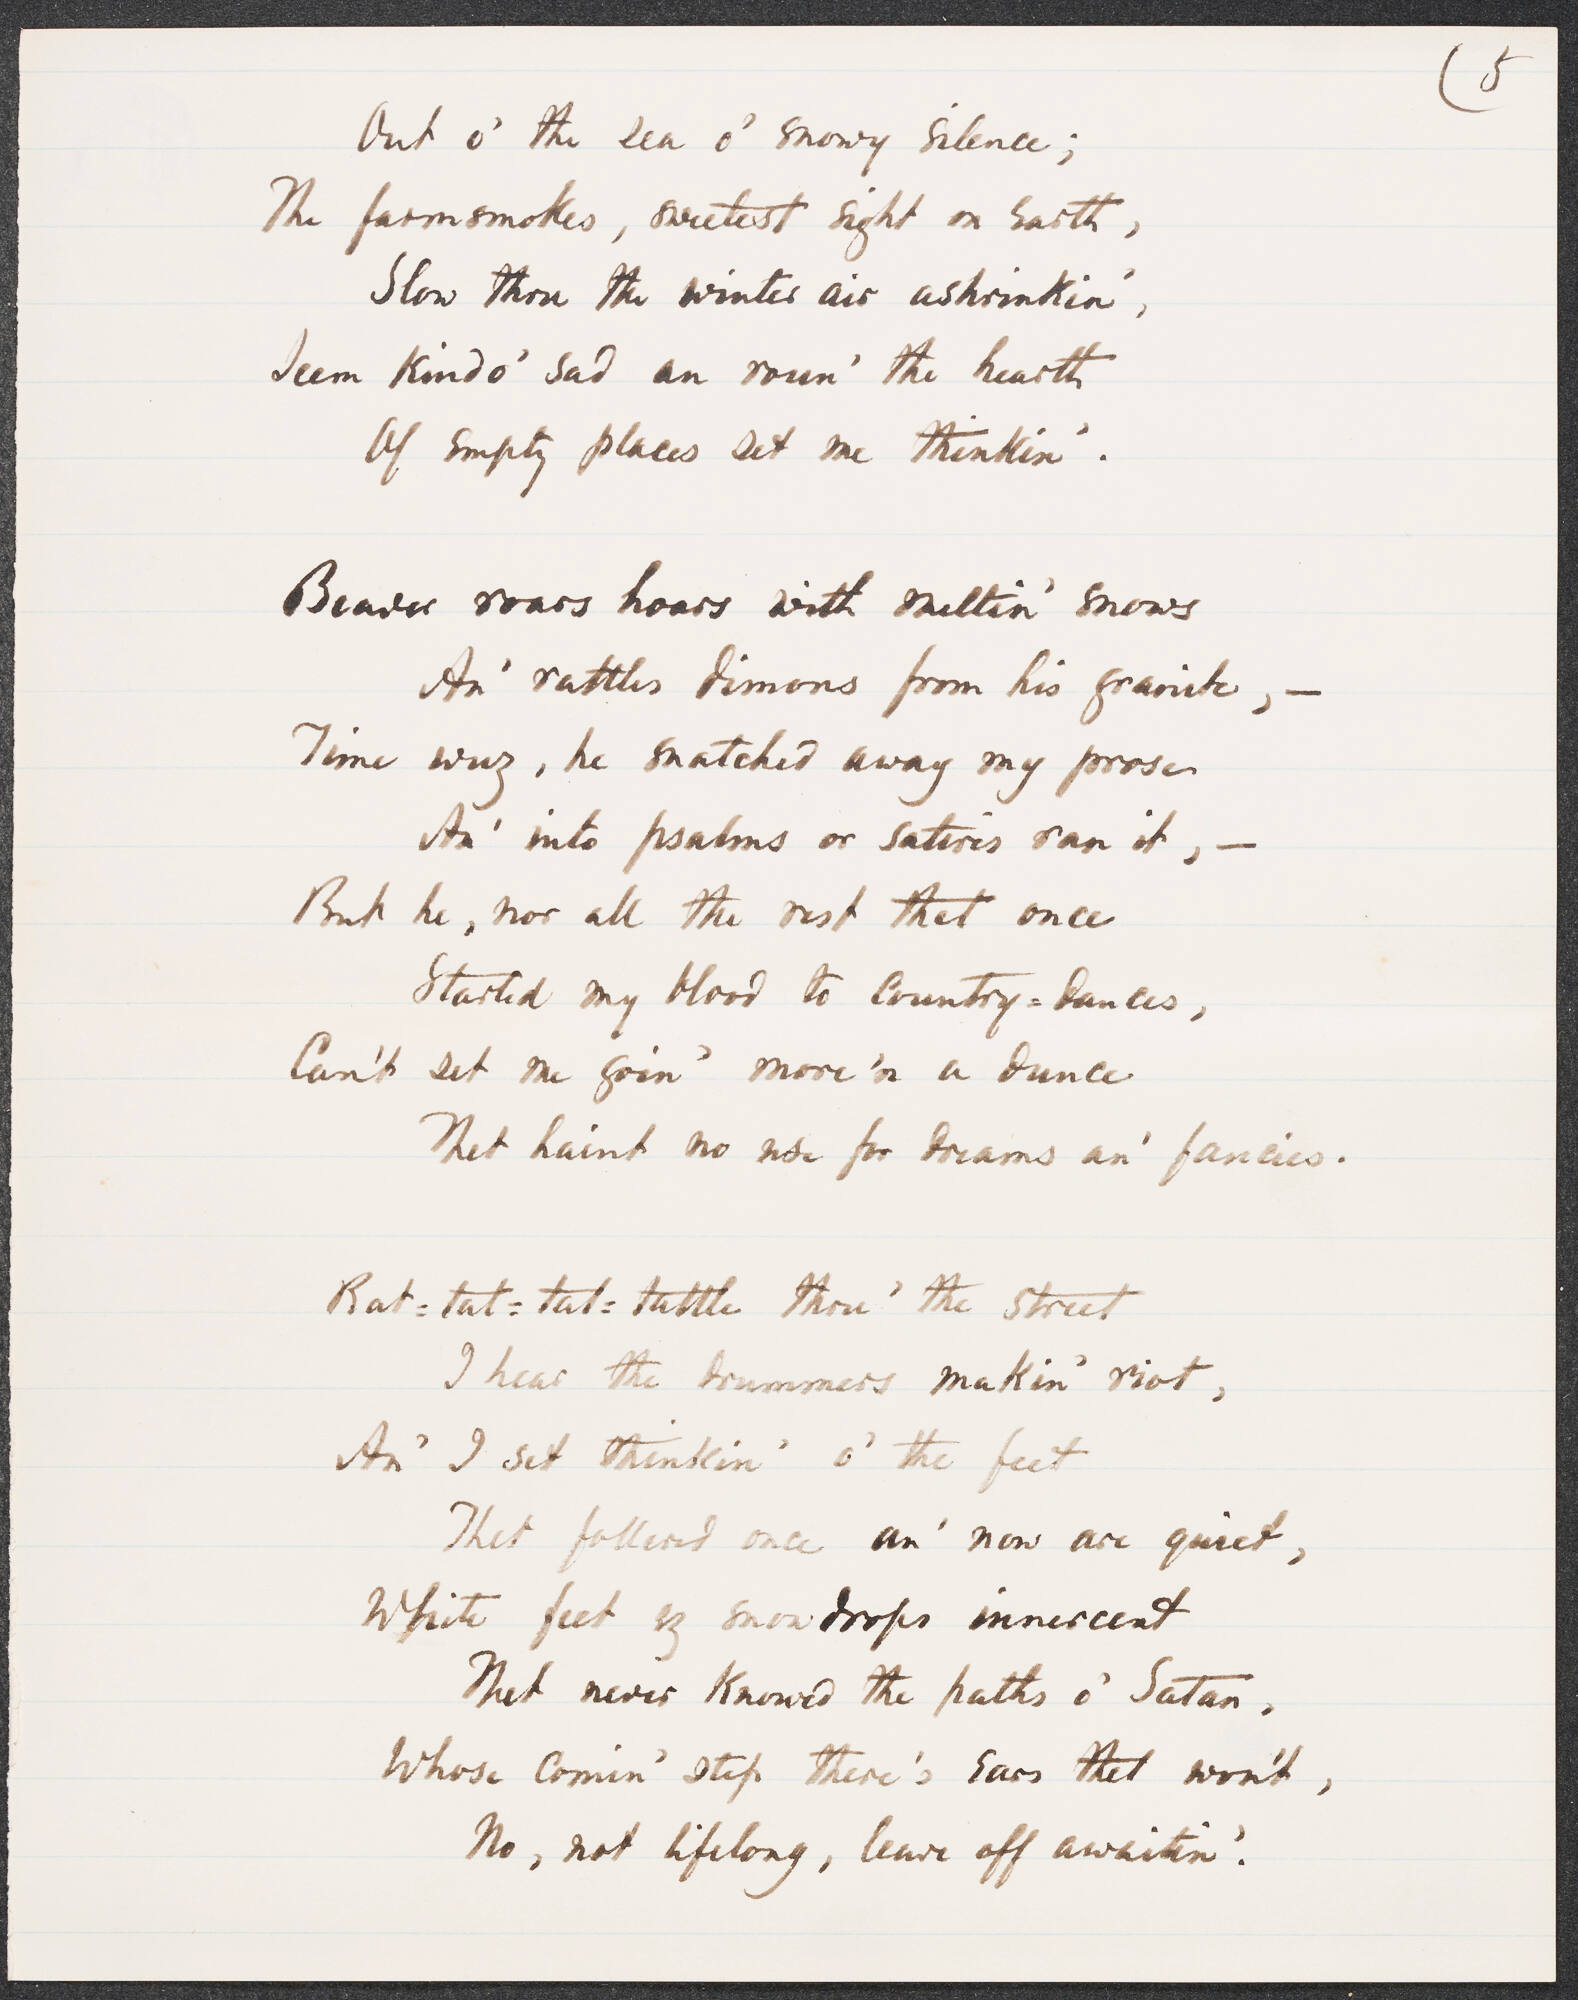 (5
Out o' the sea o' snowy silence;
The farmsmokes, sweetest sight on earth,
Slow thru the winter air ashrinkin',
Seem kindo' sad an roun' the hearth
Of empty places set me thinkin'.
Beaver roars hoars with meltin' snows
An' rattles dimons from his granite, —
Time wuz, he snatched away my prose
An' into psalms or satires ran it, —
But he, nor all the rest thet once
Started my blood to country=dances,
Can't set me goin' more'n a dunce
Thet haint no use for dreams an' fancies.
Rat=tat=tat=tattle thru' the street
I hear the drummers makin' riot,
An' I set thinkin' o' the feet
Thet follered once an' now are quiet,
White feet ez snowdrops innercent
Thet never knowed the paths o' Satan,
Whose comin' step there's ears thet won't,
No, not lifelong, leave off awaitin'.